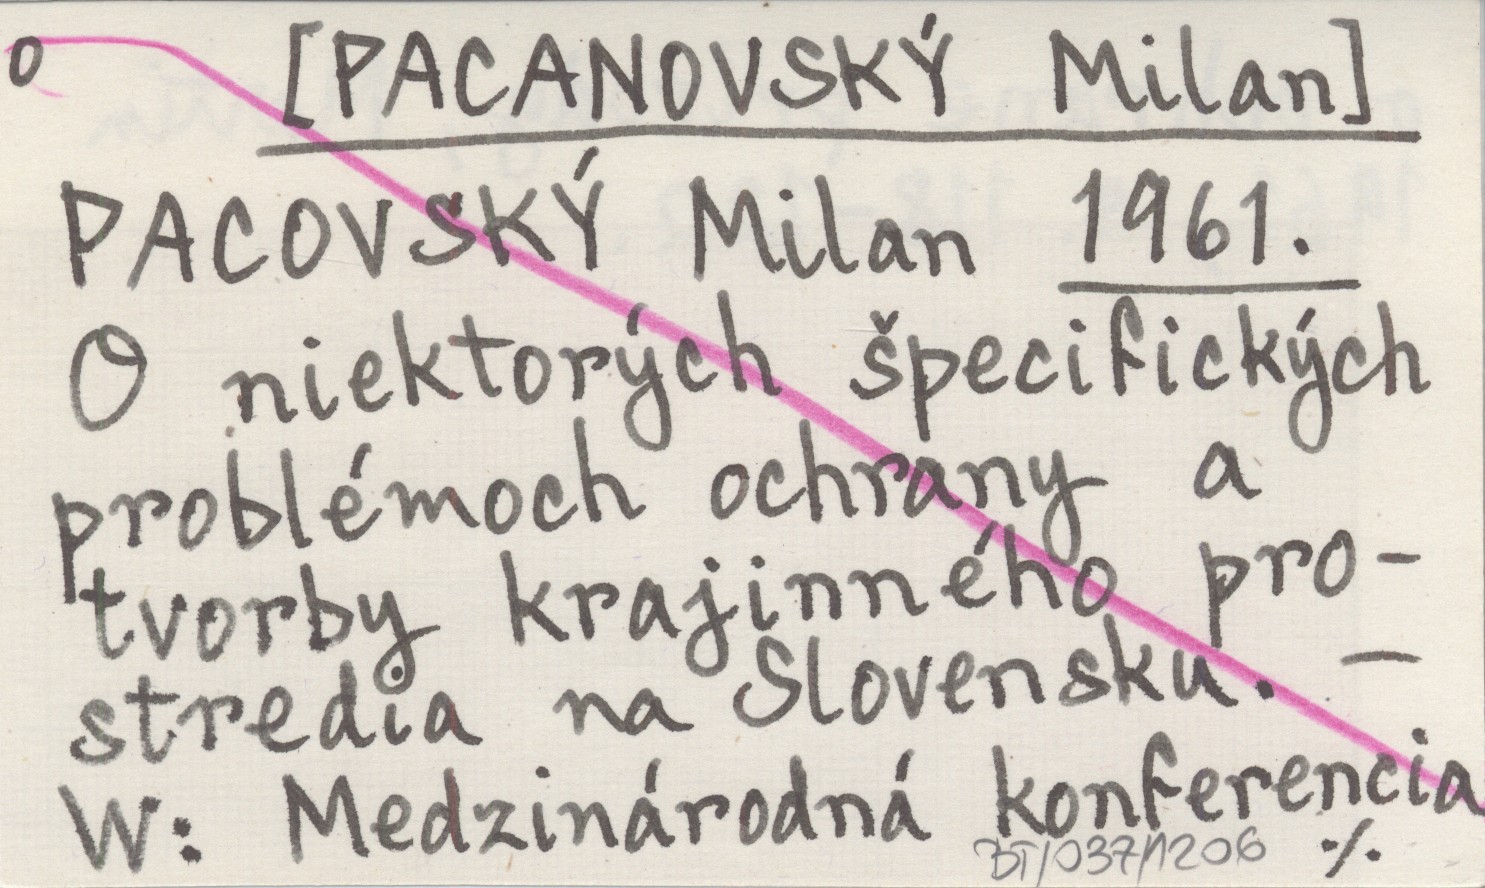 o [PACANOVSKÝ Milan]
PACOVSKÝ Milan 1961.
O niektorých špecifických
problémoch ochrany a
tvorby krajinného pro-
stredia na Slovensku. —
W: Medzinárodná konferencia
BT/037/1206 ./.